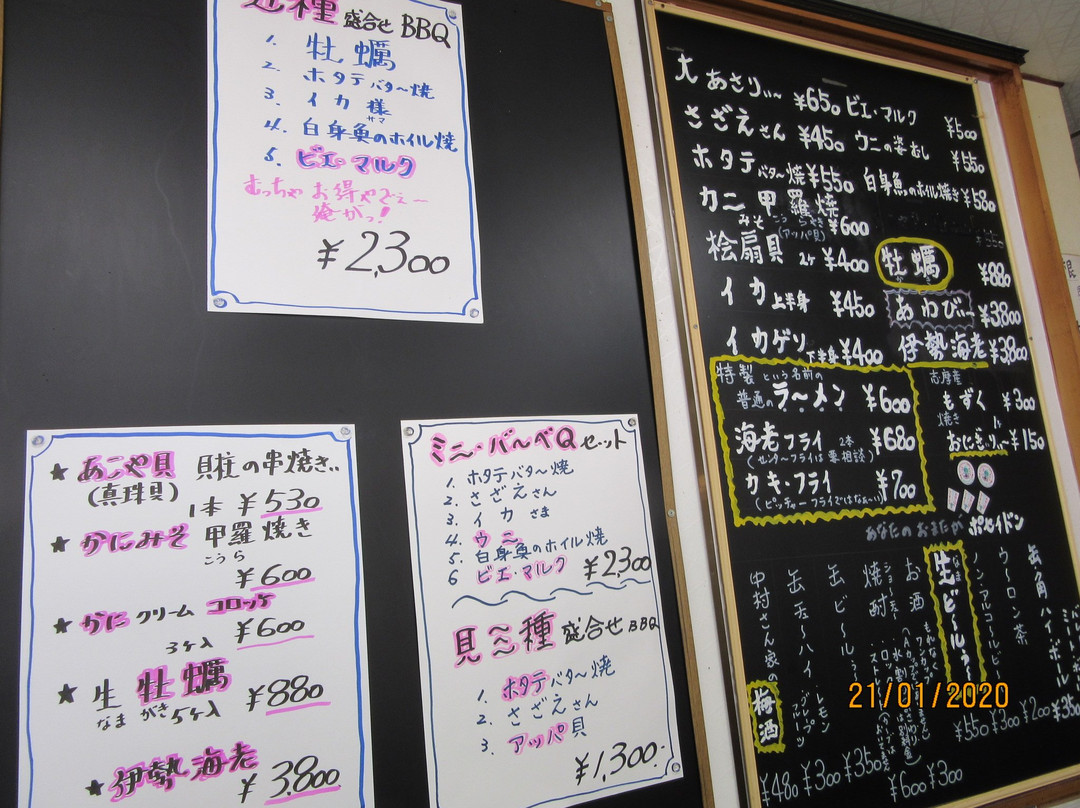 種 盛合せ BBQ
1. 牡蠣
2. ホタテバタ〜焼
3. イカ様
サマ
4. 白身魚のホイル焼
5. ビエ・マルク
むっちゃお得やでぇー
俺がっ!
¥2,300
★あこや貝 貝柱の串焼き..
(真珠貝)
1本 ¥530
★かにみそ 甲羅焼き
こうら
¥600
★かにクリームコロッケ
3ヶ入 ¥600
★生牡蠣
なま かき 5ヶ入 ¥880
★伊勢海老
¥3,800
ミニ・バ〜ベQセット
1. ホタテバタ〜焼
2. さざえさん
3. イカさま
4. ウニ
5. 白身魚のホイル焼
6 ビエ・マルク ¥2,300
貝三種 盛合せBBQ
1. ホタテバタ〜焼
2. さざえさん
3. アッパ貝
¥1,300.
大あさりぃ〜 ¥650
さざえさん ¥450
ホタテバタ〜焼 ¥550
カニ甲羅焼
みそ こうらやき ¥600
(アッパ貝)
桧扇貝 2ヶ ¥400
イカ上半身 ¥450
イカゲソ下半身 ¥400
ビエ・マルク ¥500
ウニの姿むし ¥550
白身魚のホイル焼き ¥580
牡蠣 ¥880
あわびぃー ¥3800
伊勢海老 ¥3800
特製という名前の
普通のラ〜メン ¥600
海老フライ 2本 ¥680
(センターフライは要相談)
カキ・フライ ¥700
(ピッチャーフライではなぁ〜い)
志摩産
もずく ¥300
焼き
おにぎりぃ〜 ¥150
あなたのおまたか
ポセイドン
缶角ハイ・ボール
ウ〜ロン茶
ノンアルコールビール
生ビ〜ルぅ〜
なま
お酒
焼酎
缶ビ〜ルぅ
缶チュ〜ハイ レモン
中村さん家の梅酒
¥480 ¥300 ¥350 ¥600 ¥300
¥550 ¥300 ¥200 ¥350
21/01/2020